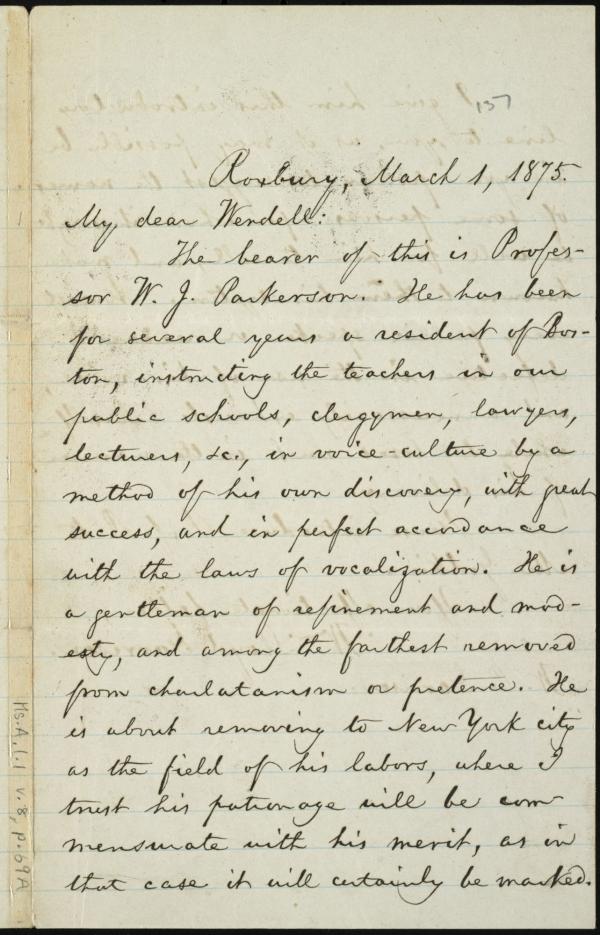 137
Roxbury, March 1, 1875.
My dear Wendell:
The bearer of this is Profes-
sor W. J. Parkerson. He has been
for several years a resident of Bos-
ton, instructing the teachers in our
public schools, clergymen, lawyers,
lecturers, &c., in voice-culture by a
method of his own discovery, with great
success, and in perfect accordance
with the laws of vocalization. He is
a gentleman of refinement and mod-
esty, and among the farthest removed
from charlatanism or pretence. He
is about removing to New York city
as the field of his labors, where I
trust his patronage will be com-
mensurate with his merit, as in
that case it will certainly be marked.
Ms.A.1.1 v.8, p.69A